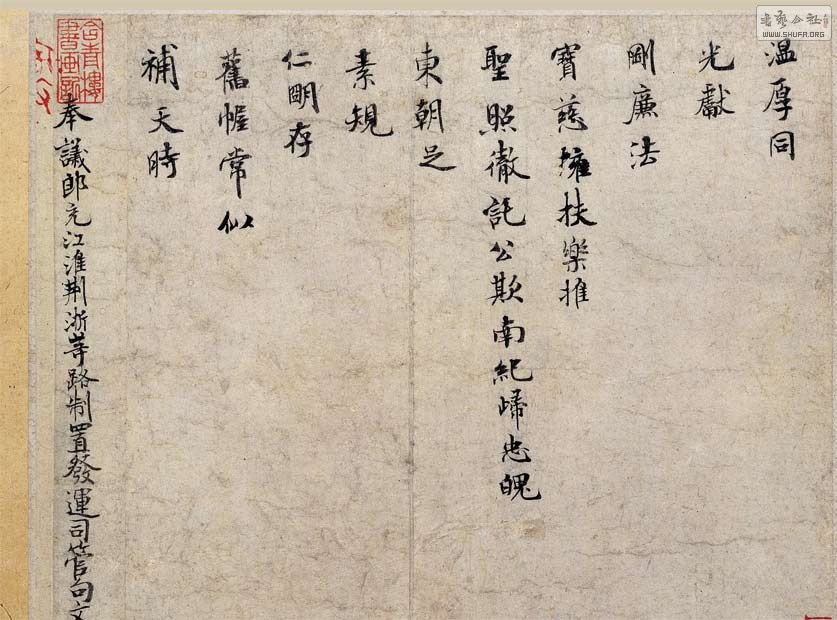 温厚同
光獻
剛廉法
寶慈擁扶樂推
聖照徹託公欺南紀歸忠魄
東朝足
素規
仁明存
舊幄常似
補天時
奉議郎充江淮荆浙等路制置發運司管句文
書藝公社
WWW.SHUFA.ORG